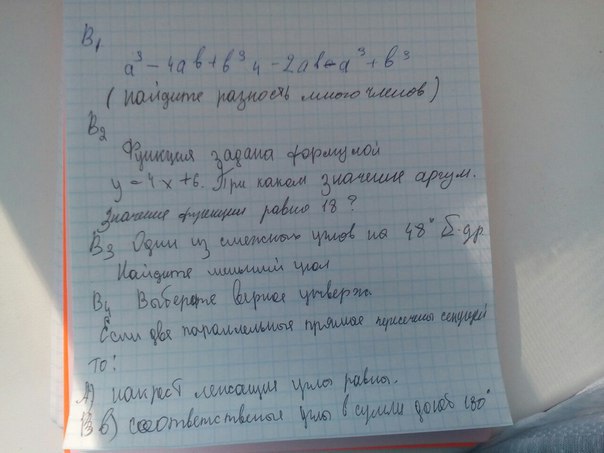 В1
a³ - 4ab + b³ и - 2ab - a³ + b³
(Найдите разность многочленов)
В2
Функция задана формулой
y = 4x + 6. При каком значение аргум.
Значение функции равно 18?
В3 Один из смежных углов на 48° б. др.
Найдите меньший угол
В4 Выберете верное утверж.
Если две параллельные прямое пересечены секущей
то:
А) накрест лежащие углы равны.
В) соответственые углы в сумме дают 180°